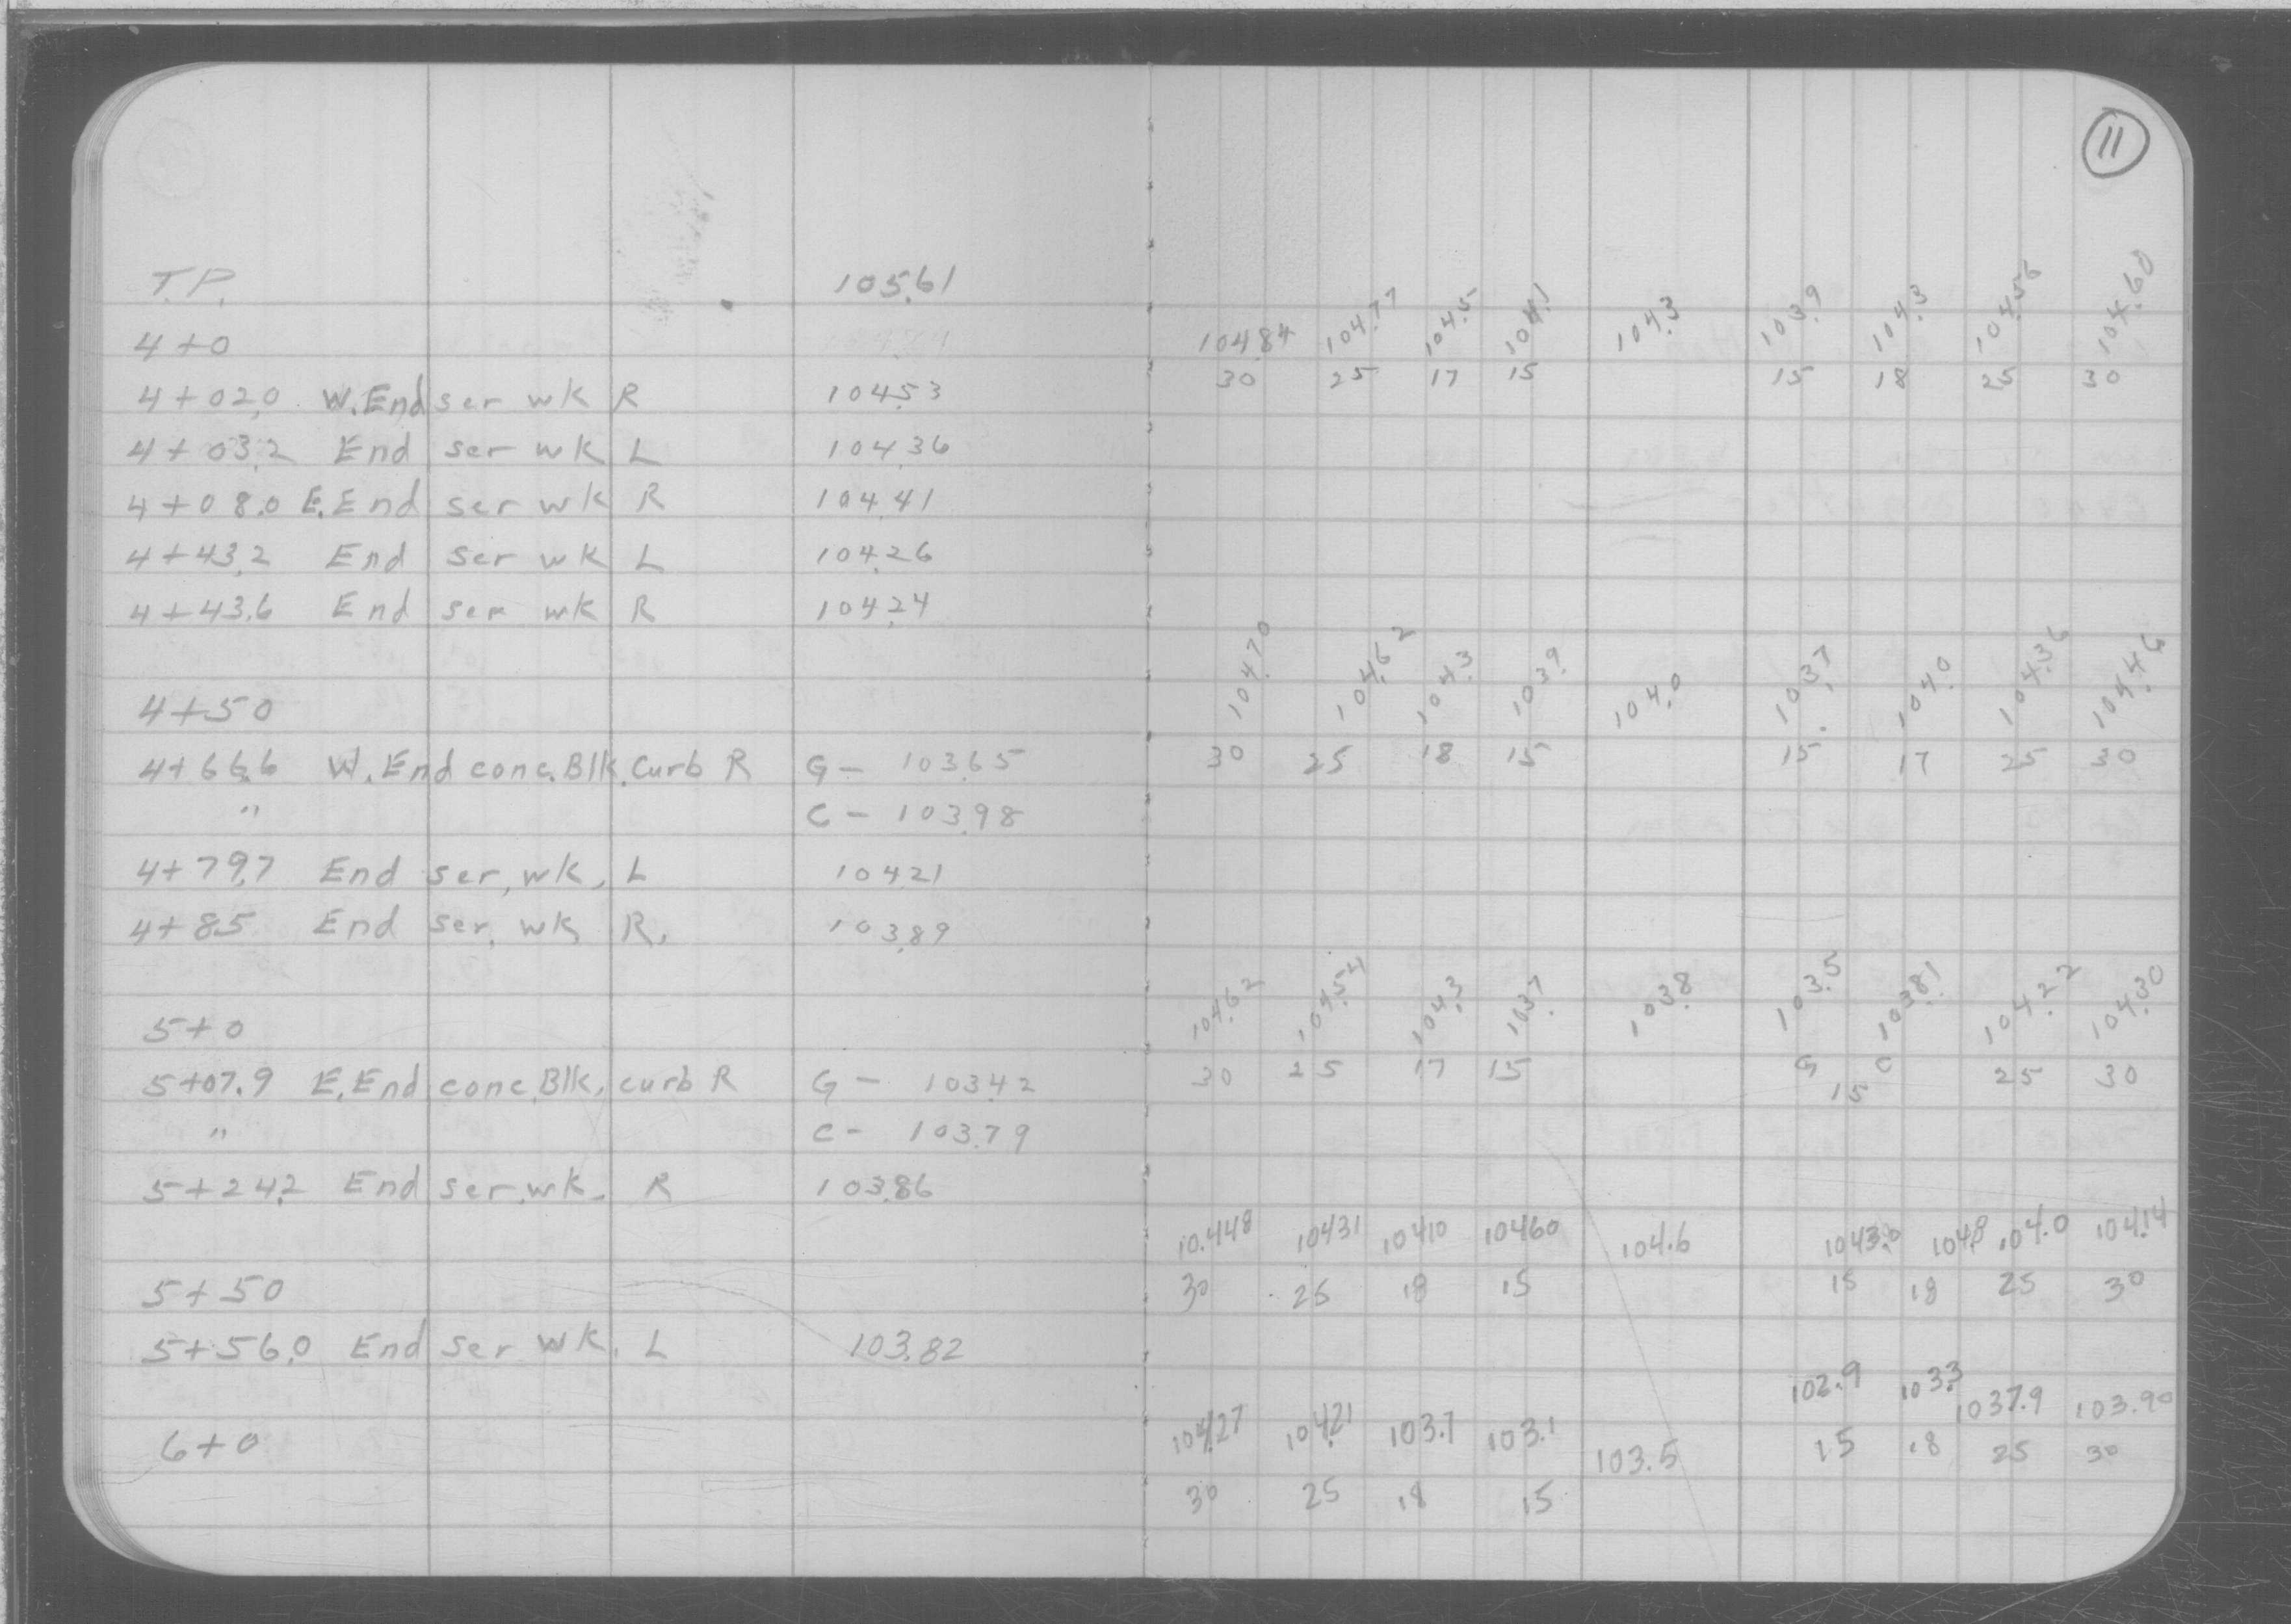 11
T.P. 105.61
4+0
104.84 104.77 104.5 104.1 104.3 103.9 104.3 104.56 104.60
30 25 17 15 15 18 25 30
4+02.0 W. End ser wk R 104.53
4+03.2 End ser wk L 104.36
4+08.0 E. End ser wk R 104.41
4+43.2 End ser wk L 104.26
4+43.6 End ser wk R 104.24
4+50
104.70 104.62 104.3 103.9 104.0 103.7 104.0 104.36 104.46
30 25 18 15 15 17 25 30
4+66.6 W. End conc. Blk. Curb R G - 103.65
" C - 103.98
4+79.7 End ser, wk, L 104.21
4+85 End ser, wk, R. 103.89
5+0
104.62 104.54 104.3 103.7 103.8 103.5 103.81 104.22 104.30
30 25 17 15 G C 25 30
15
5+07.9 E. End conc. Blk, curb R G - 103.42
" C - 103.79
5+24.2 End ser, wk, R 103.86
10.448 10431 10410 10460 104.6 1043.0 104.8 104.0 104.14
5+50 30 25 18 15 15 18 25 30
5+56.0 End ser wk. L 103.82
102.9 103.3 1037.9 103.90
6+0 104.27 104.21 103.7 103.1 103.5 15 18 25 30
30 25 18 15